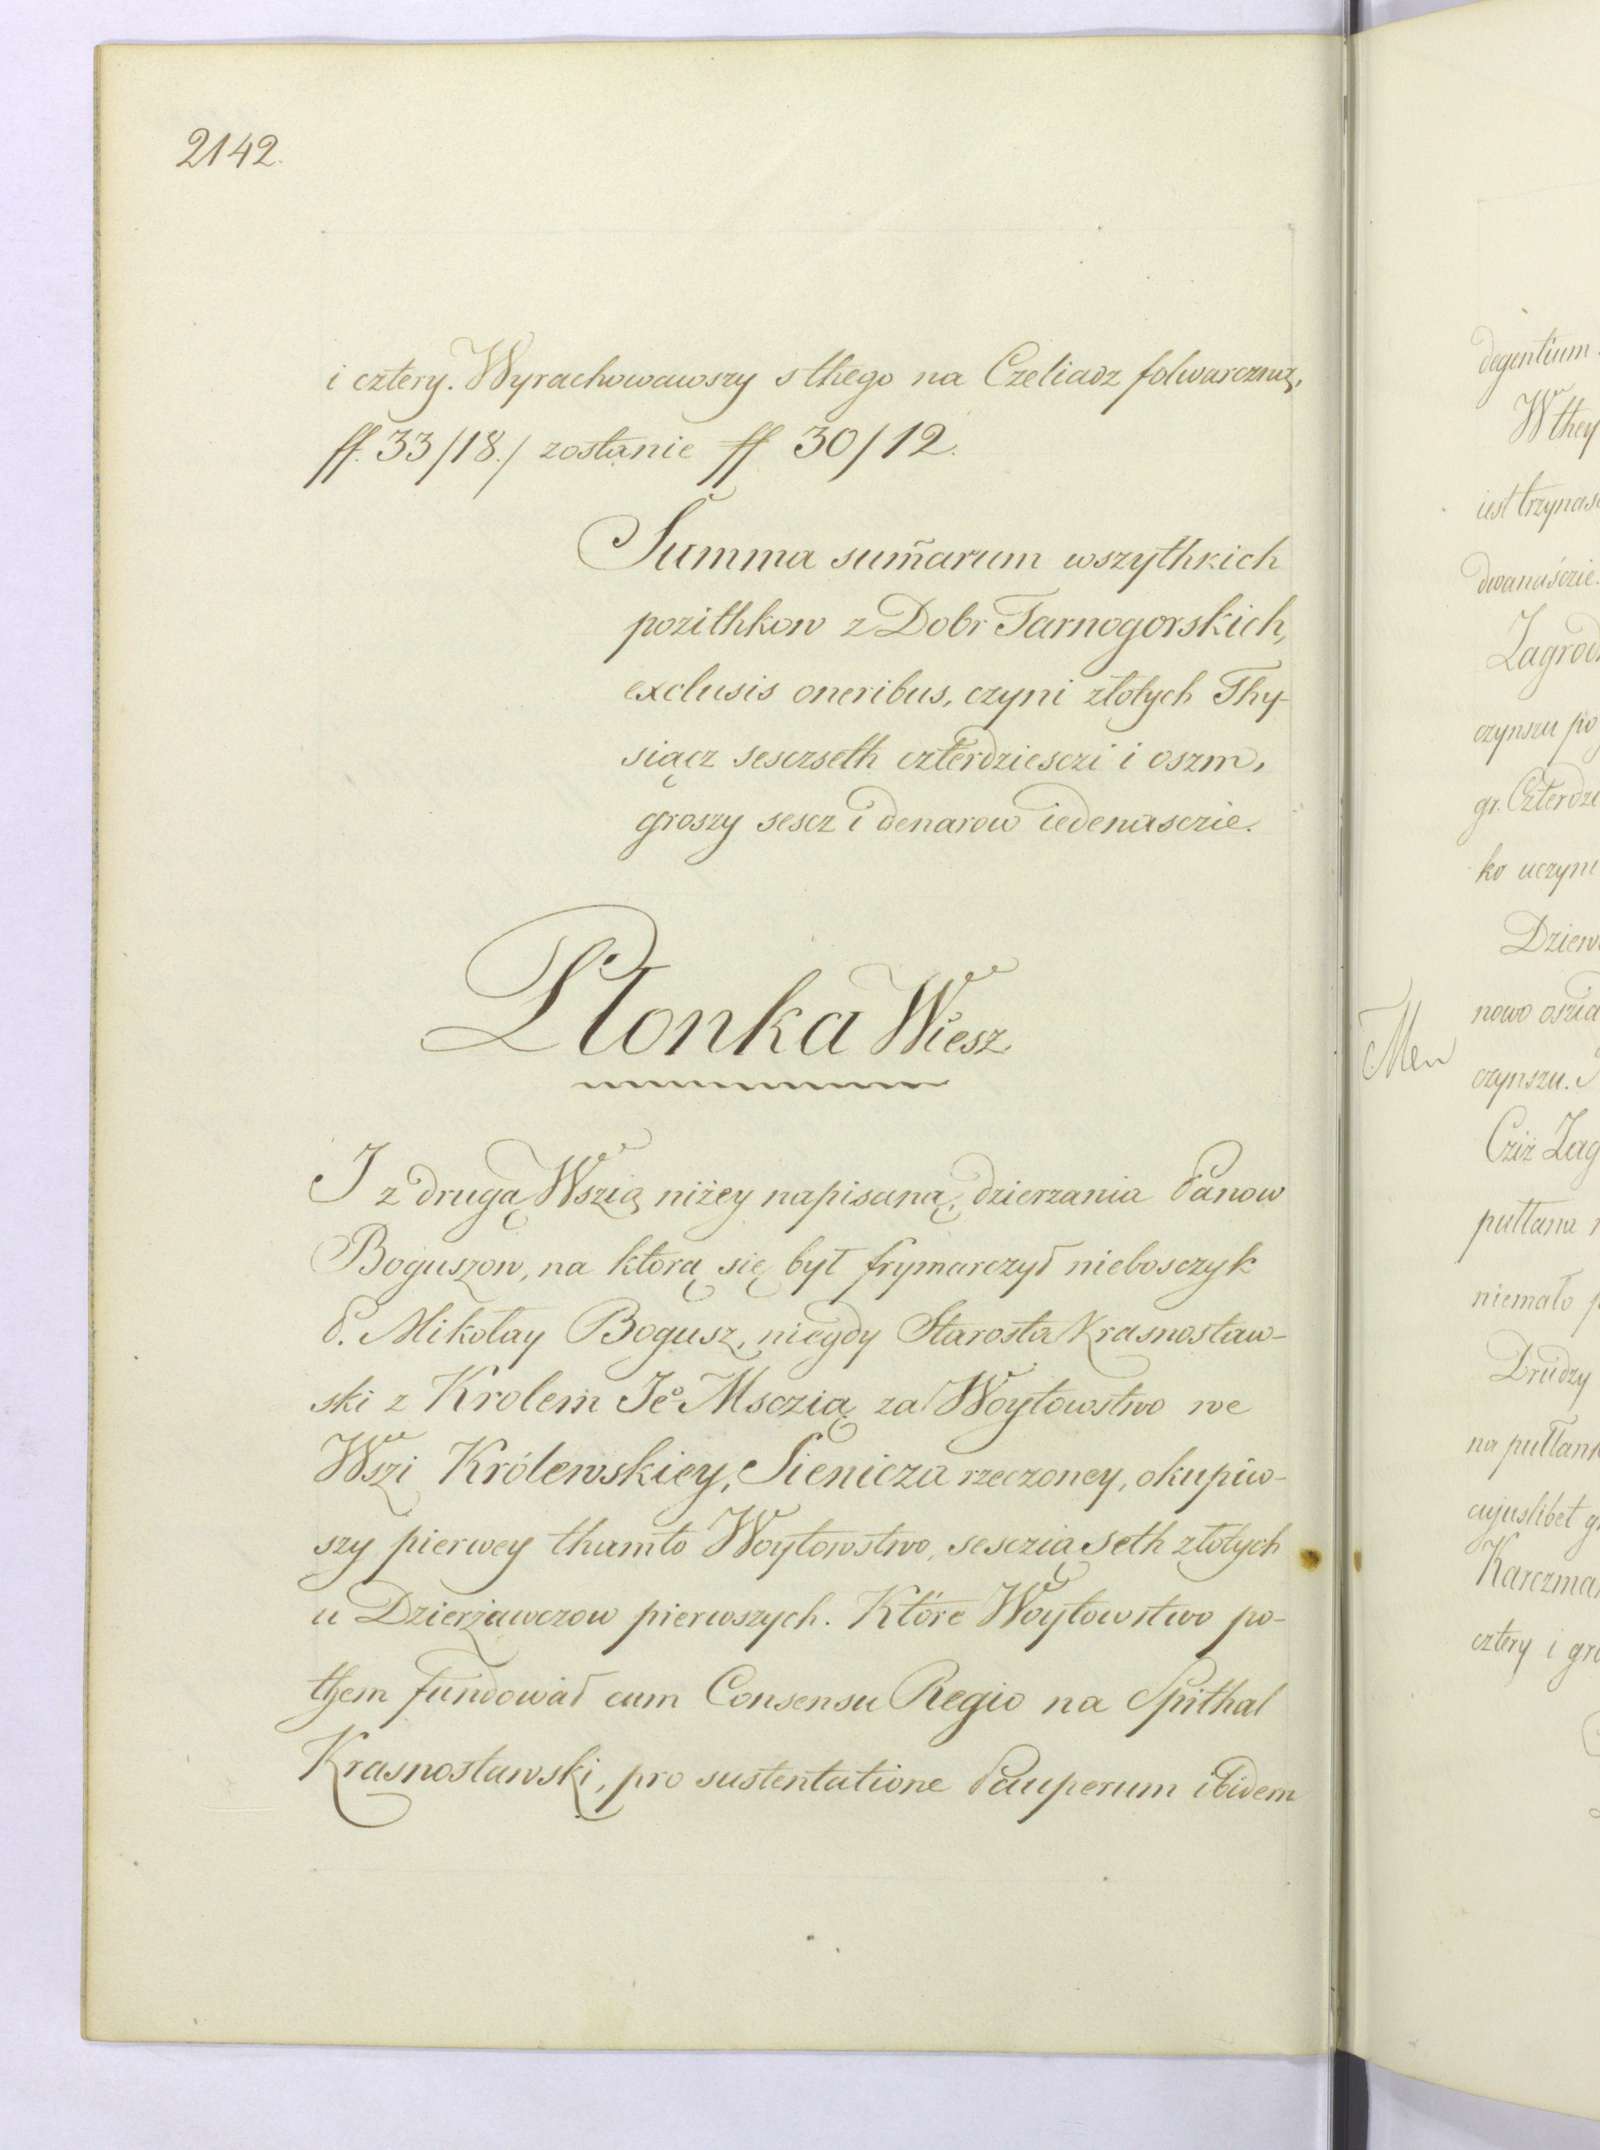 2142.
i cztery. Wyrachowawszy sthego na Czeliadz folwarczną,
ff. 33/18./ zostanie ff 30/12.
Summa sum̃arum wszythkich
pozithkow z Dobr Tarnogorskich,
exclusis oneribus, czyni złotych Thy-
siącz sesczseth czterdziesczi i oszm,
groszy sescz i denarow iedenasczie.
Płonka Wiesz
I z drugą Wszią niżey napisaną, dzierzania Panow
Boguszow, na ktorą się był frymarczył niebosczyk
P. Mikołay Bogusz, niegdy Starosta Krasnostaw-
ski z Krolem Je° Msczią za Woytowstwo we
Wszi Królewskiey, Sienicza rzeczoney, okupiw-
szy pierwey thamto Woytowstwo, sesczią seth złotych
u Dzierżawczow pierwszych. Które Woytowstwo po-
them fundował cum Consensu Regio na Spithal
Krasnostawski, pro sustentatione Pauperum ibidem
degentium.
W they
iest trzynas
dwanaście.
Zagrod
czynszu po
gr. Czterdzi
ko uczyni
nowo osia
czynszu.
Cziż Zag
pułtana
niemało
Drudzy
na pułtan
cujuslibet
Karczma
cztery i gro